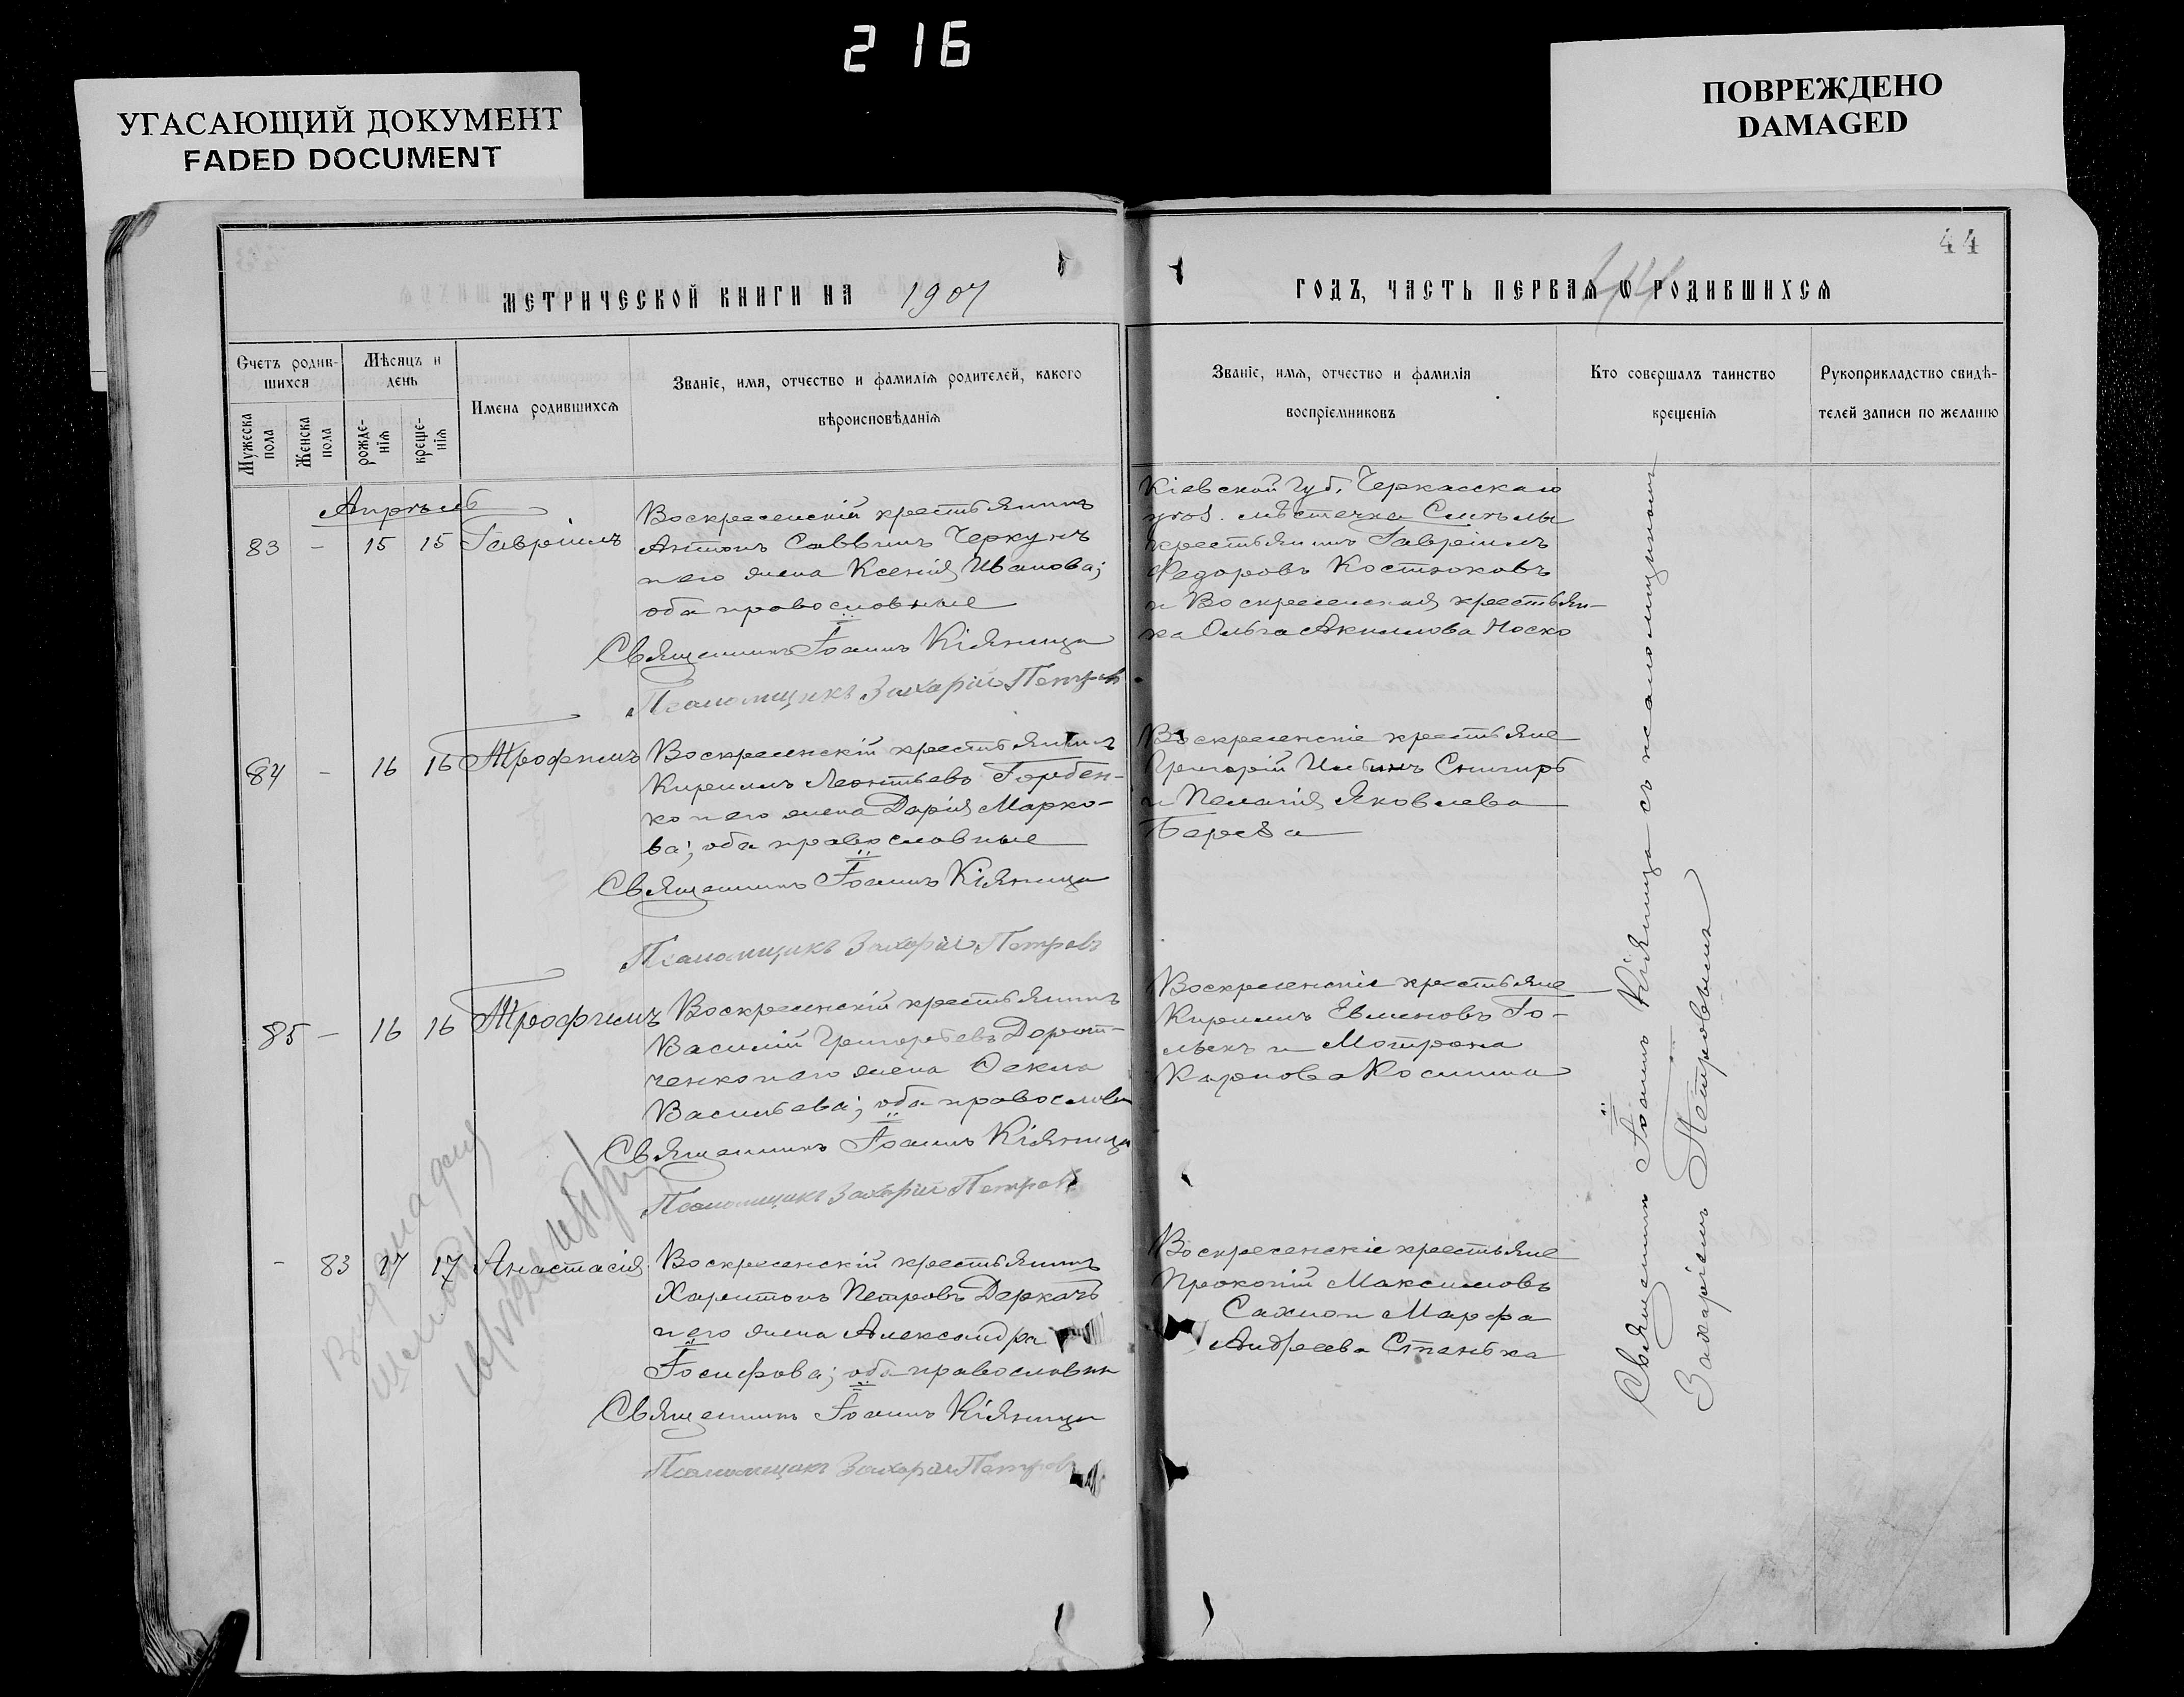 216
УГАСАЮЩИЙ ДОКУМЕНТ
FADED DOCUMENT
ПОВРЕЖДЕНО
DAMAGED
44
МЕТРИЧЕСКОЙ КНИГИ НА 1907
ГОДЪ, ЧАСТЬ ПЕРВАЯ Ѡ РОДИВШИХСЯ
Счетъ родив-
шихся
Мужеска
пола
Женска
пола
Мѣсяцъ и
день
рожде-
нія
креще-
нія
Имена родившихся
Званіе, имя, отчество и фамилія родителей, какого
вѣроисповѣданія
Званіе, имя, отчество и фамилія
воспріемниковъ
Кто совершалъ таинство
крещенія
Рукоприкладство свидѣ-
телей записи по желанію
Апрѣль
83 - 15 15 Гавріилъ
Воскресенскій крестьянинъ
Антонъ Саввинъ Черкунъ
и его жена Ксенія Иванова;
оба православные
Священникъ Іоаннъ Кіяница
Псаломщикъ Захарій Петровъ
Кіевской губ. Черкасскаго
уѣзд. мѣстечка Смѣлы
крестьянинъ Гавріилъ
Федоровъ Костюковъ
и Воскресенская крестьян-
ка Ольга Акимова Носко
84 - 16 16 Трофимъ
Воскресенскій крестьянинъ
Кириллъ Леонтьевъ Горбен-
ко и его жена Дарія Марко-
ва; оба православные
Священникъ Іоаннъ Кіяница
Псаломщикъ Захарій Петровъ
Воскресенскіе крестьяне
Григорій Ильинъ Снигирь
и Пелагія Яковлева
Береза
85 - 16 16 Трофимъ
Воскресенскій крестьянинъ
Василій Григорьевъ Дорот-
ченко и его жена Ѳекла
Васильева; оба православн
Священникъ Іоаннъ Кіяница
Псаломщикъ Захарій Петровъ
Воскресенскіе крестьяне
Кириллъ Евменовъ Го-
лѣкъ и Мотрона
Карпова Косинна
- 83 17 17 Анастасія
Воскресенскій крестьянинъ
Харитонъ Петровъ Деркачъ
и его жена Александра
Іосифова; оба православн
Священникъ Іоаннъ Кіяница
Псаломщикъ Захарій Петровъ
Воскресенскіе крестьяне
Прокопій Максимовъ
Сахно и Марфа
Андреева Стенька
Священникъ Іоаннъ Кіяница съ псаломщикомъ
Захаріемъ Петровымъ